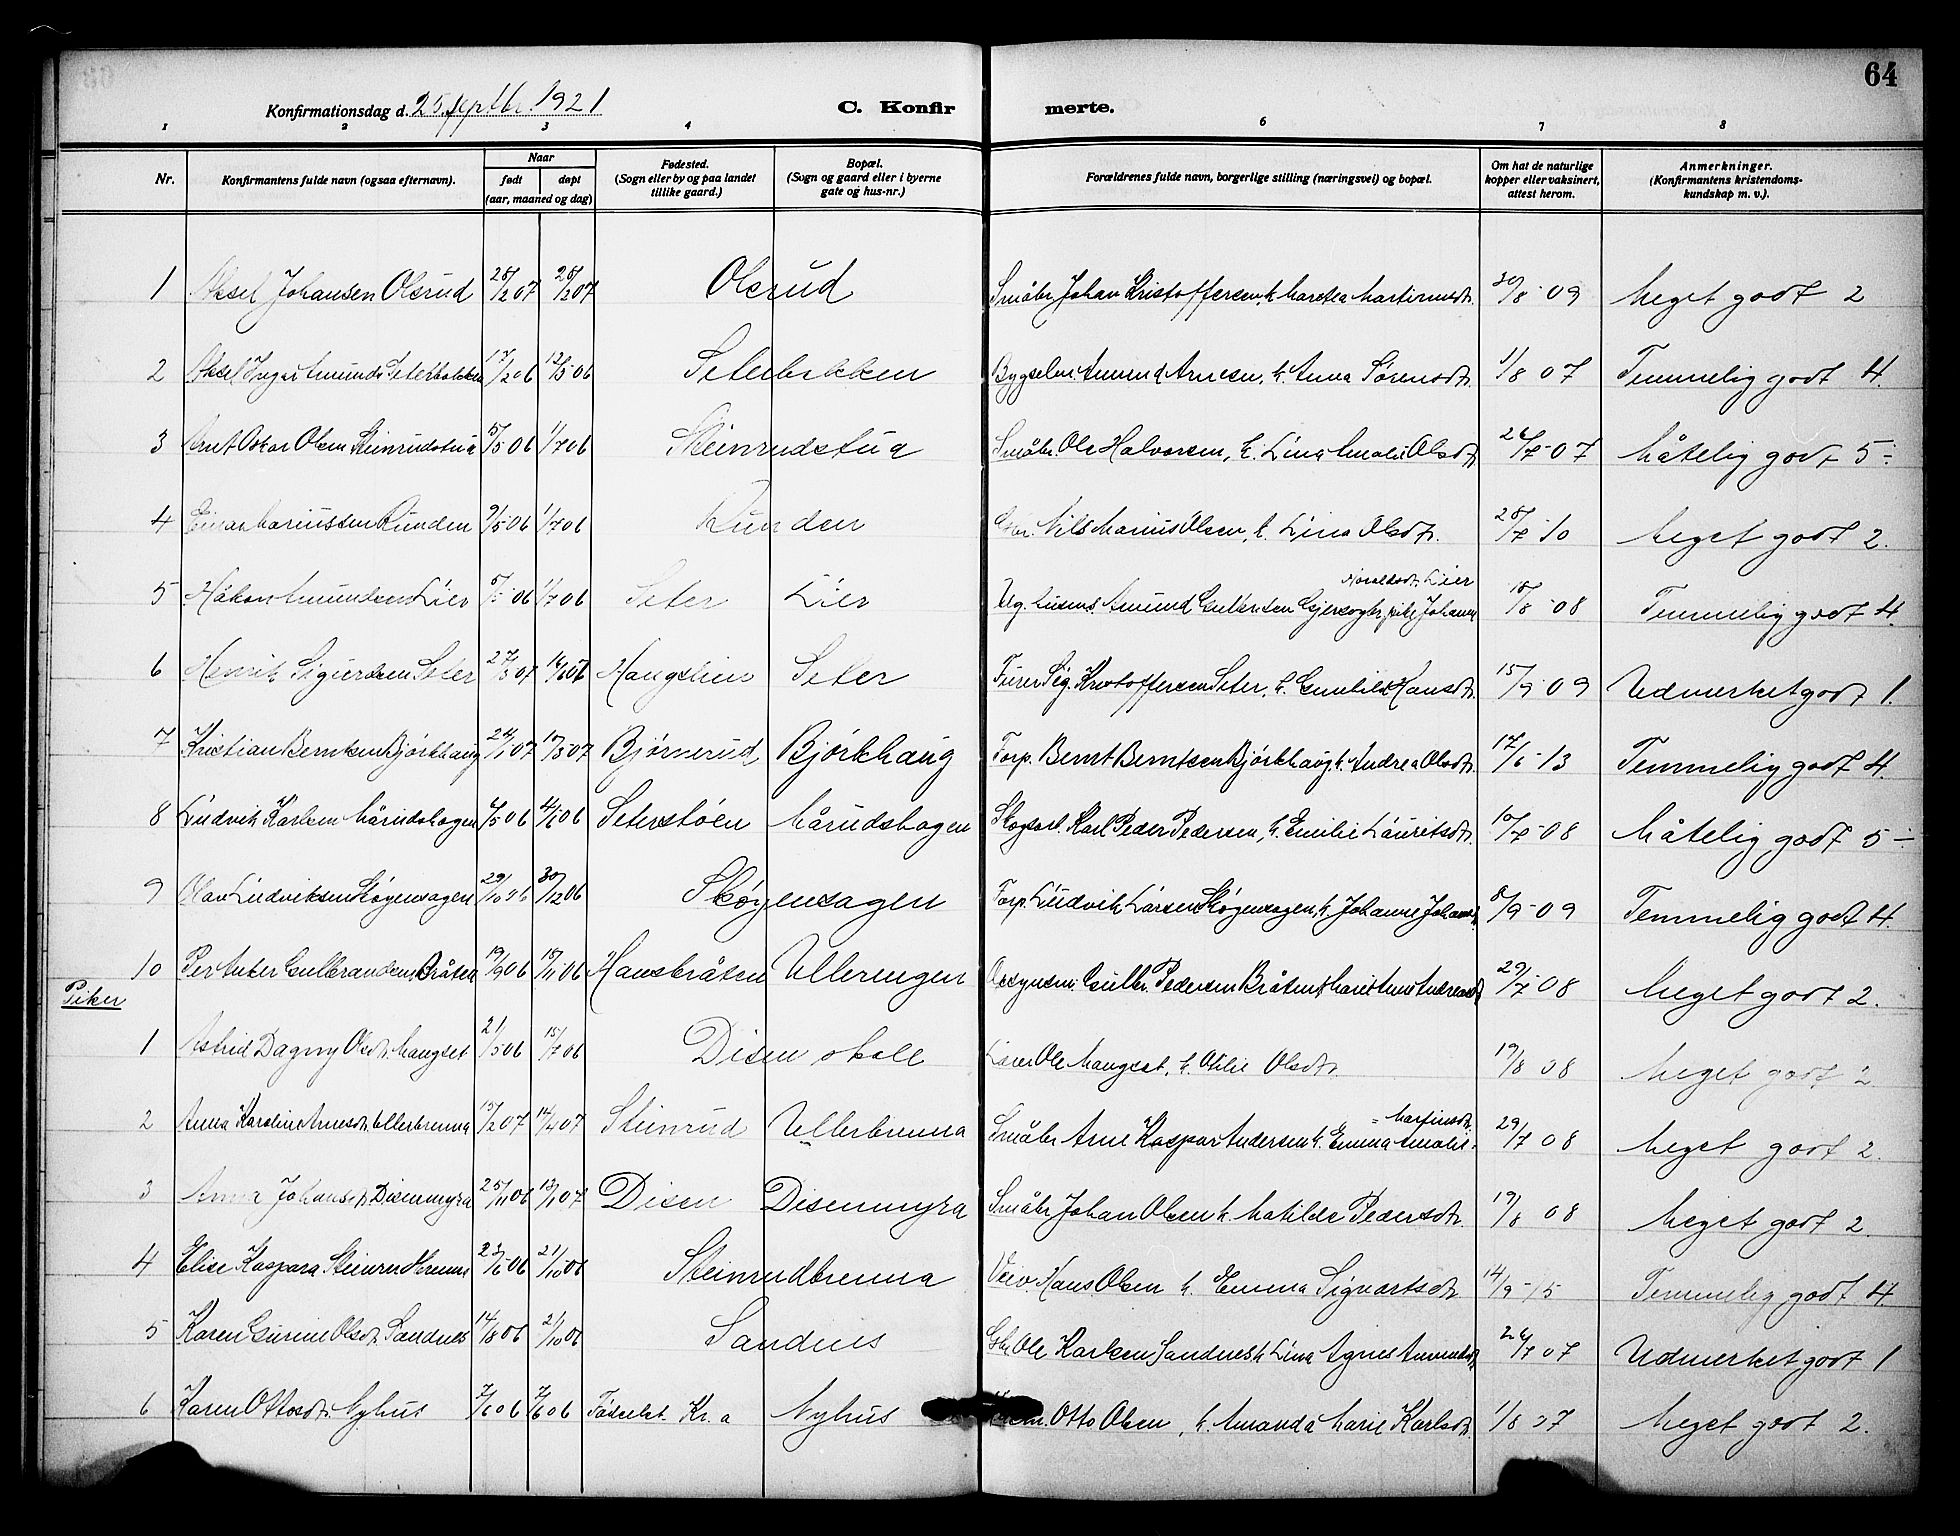 64
Konfirmationsdag d. 25 septbr. 1921 C. Konfirmerte.
1 2 3 4 6 7 8
Nr. Konfirmantens fulde navn (ogsaa efternavn). Naar født døpt (aar, maaned og dag) Fødested. (Sogn eller by og paa landet tillike gaard.) Bopæl. (Sogn og gaard eller i byerne gate og hus-nr.) Forældrenes fulde navn, borgerlige stilling (næringsvei) og bopæl. Om hat de naturlige kopper eller vaksinert, attest herom. Anmerkninger. (Konfirmantens kristendomskundskap m. v.).
1 Aksel Johansen Olsrud 28/2 07 Olsrud Småbr. Johan Kristoffersen, h. Martinusdr. 30/8 - 09 Meget godt 2
2 Aksel Ingar Amunds. Seterbakken 17/2 06 Seterbakken Amund Arnesen, h. Anna Sørensdr. 1/8 07 Temmelig godt 4.
3 Arnt Oskar Olsen Steinrudstua 5/5 06 1/7 06 Steinrudstua Småbr. Ole Halvorsen, h. Lina Amalie Olsdr. 26/7 - 07 Måtelig godt 5-
4 Einar Mariussen Runden 9/5 06 1/7 06 Runden Nils Marius Olsen, h. Lina Olsdr. 28/7 - 10 Meget godt 2.
5 Håkon Amundsen Lier 1/7 06 Seter Lier Ug. Amund Gulbrandsen pike Johanne Haraldsdr. Lier 18/8 - 08 Temmelig godt 4.
6 Henrik Sigurdsen Seter 27/3 07 Seter Sig. Kristoffersen Seter, h. Hansdr. 15/9 - 09 Udmerket godt 1.
7 Kristian Berntsen Bjørkhaug 24/1 07 Bjørnerud Bjørkhaug Torp. Bernt Berntsen Bjørkhaug h. Andrea Olsdr. 17/6 - 13 Temmelig godt 4.
8 Ludvik Karlsen Mårudshagen Seterstøen Mårudshagen Skogsarb. Karl Peder Pedersen, h. Emilie Lauritsdr. 10/7 - 08 Måtelig godt 5-
9 Olav Ludviksen Skøgensagen 29/10 06 30/12 06 Skøgensagen Torp. Ludvik Larsen Skøgensagen, h. Johanne 8/9 - 09 Temmelig godt 4.
10 Per Anker Gulbrandsen Bråten 19/9 06 18/11 06 Hansbråten Ulleringen Gulbr. Pedersen Bråten 29/7 - 08 Meget godt 2.
Piker
1 Astrid Dagny Olsdr. Mangset 21/5 06 15/7 06 Disen skole Lærer Ole Mangset, h. Otilie Olsdr. 19/8 08 Meget godt 2
2 Anna Karoline Arnesdr. Ullerbrenna 15/2 07 14/4 07 Steinrud Ullerbrenna Småbr. Arne Kaspar Andersen h. Emma Amalie Martinsdr. 29/7 08 Meget godt 2.
3 Anna Johansdr. Disenmyra 25/11 06 13/1 07 Disen Disenmyra Småbr. Johan Olsen h. Matilde Pedersdr. 19/8 08 Meget godt 2.
4 Elise Kaspara Steinrudbrenna 23/6 06 21/10 06 Steinrudbrenna Hans Olsen h. Emma Sigvartsdr. 14/9 - 15 Temmelig godt 4.
5 Karen Gurine Olsdr. Sandnes 14/8 06 21/10 06 Sandnes Gbr. Ole Karlsen Sandnes h. Lina Agnes Amundsdr. 26/7 07 Udmerket godt 1
6 Karen Ottosdr. Nyhus 7/6 06 Fødselst. Kr.a Nyhus Otto Olsen, h. Amanda Marie Karlsdr. 1/8 07 Meget godt 2.